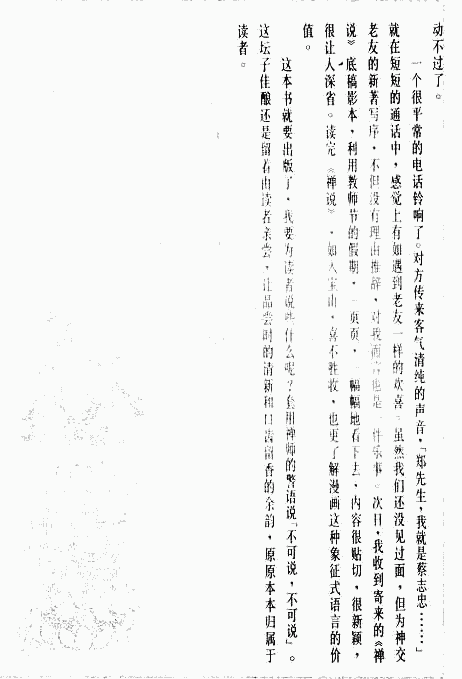 动不过了。
一个很平常的电话铃响了。对方传来客气清纯的声音，「郑先生，我就是蔡志忠……」
就在短短的通话中，感觉上有如遇到老友一样的欢喜；虽然我们还没见过面，但为神交
老友的新著写序，不但没有理由推辞，对我而言也是一件乐事。次日，我收到寄来的《禅
说》底稿影本，利用教师节的假期，一页页，一幅幅地看下去，内容很贴切，很新颖，
很让人深省。读完《禅说》，如入宝山，喜不胜收，也更了解漫画这种象征式语言的价
值。
这本书就要出版了，我要为读者说些什么呢？套用禅师的警语说「不可说，不可说」。
这坛子佳酿还是留着由读者亲尝，让品尝时的清新和口齿留香的余韵，原原本本归属于
读者。